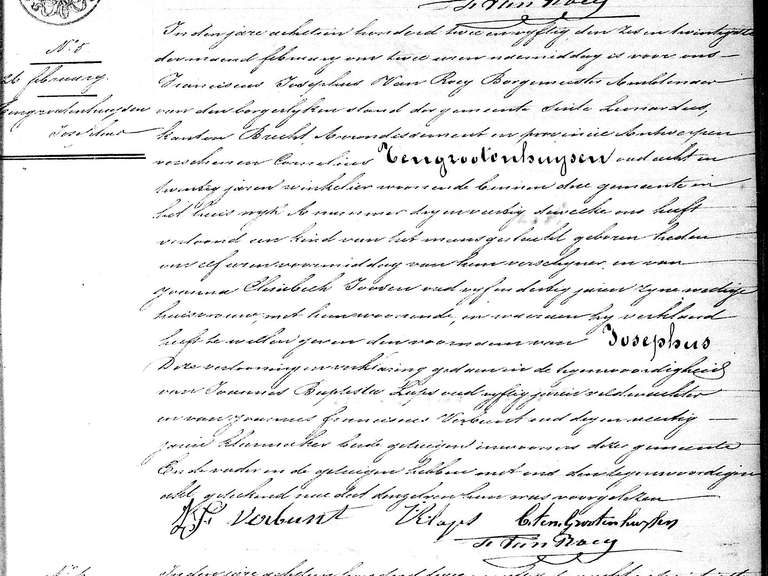 F. Van Roey
N.° 5
26 february
Tengrootenhuysen
Josephus
In den jare achtien honderd twee en vyftig, den zes en twintigste
der maand february om twee uren namiddag is voor ons
Franciscus Josephus Van Roey Borgemeester Ambtenaer
van den borgerlyken stand der gemeente Sinte Lenaerdus,
kanton Brecht, Arrondissement en provincie Antwerpen
verschenen Cornelius Tengrootenhuysen oud acht en
twintig jaren winkelier woonende binnen dese gemeente in
het huis wyk A nummer dryenveertig, dewelke ons heeft
vertoond een kind van het mannegeslacht geboren heden
om elf uren voormiddag van hem verschyner, en van
Joanna Elisabeth Joosen oud vyf en dertig jaren zyne wettige
huisvrouw, met hem woonende, en waeraen hy verklaerd
heeft te willen geven den voornaem van Josephus
Deze vertooning en verklaring gedaen in de tegenwoordigheid
van Joannes Baptista Klaps oud vyftig jaren veldwachter
en van Joannes Franciscus Verbunt oud dryenveertig
jaren kleermaker beide getuigen inwooners dezer gemeente
En de vader en de getuigen hebben met ons den tegenwoordigen
akt geteekend na dat dezelve hun was voorgelezen
J F Verbunt Klaps C Tengrootenhuysen
F. Van Roey